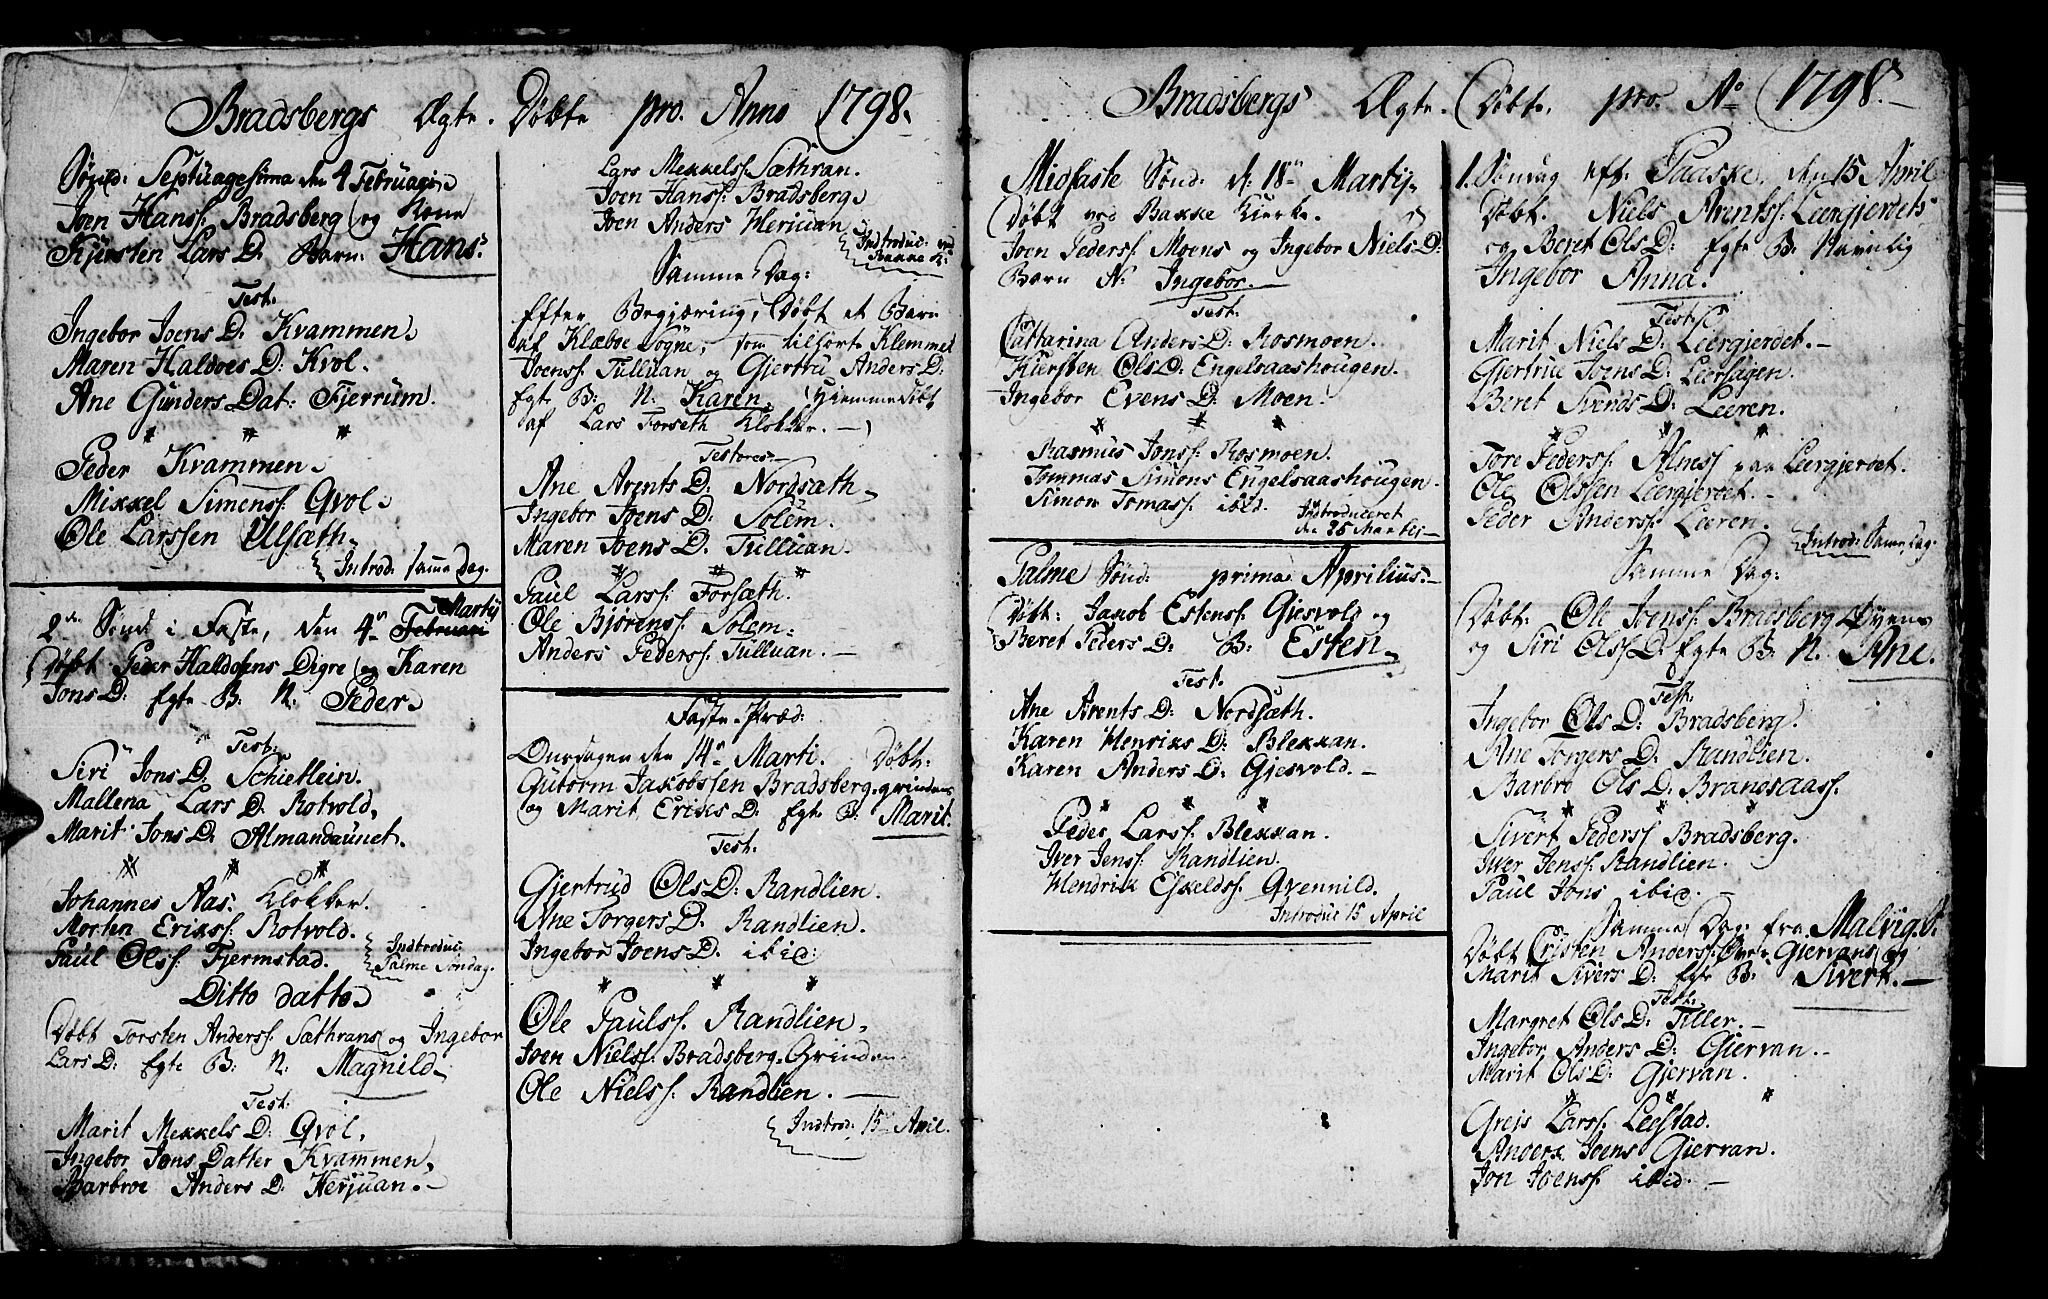 Bradsbergs Ægte. Døbte pro. Anno 1798.
Sønd: Septuagesima den 4 Februarii
Joen Hanss: Bradsberg og Kone
Kjersten Lars D. Barn: Hans.
Test:
Ingebor Joens D. Kvammen.
Maren Haldoes D: Kvol.
Ane Gunders Dat: Fjerrum.
Peder Kvammen.
Mikkel Simenss. Qvol.
Ole Larssen Ulsæth.
Introd: samme Dag.
2den Sønd: i Faste, den 4de Februari Martij
Døbt Peder Haldosens Digre og Karen
Jons D: Egte B: N: Peder.
Test:
Siri Jons D: Schietlein.
Mallena Lars D. Rotvold.
Marit Jons D: Almandaunet.
Johannes Aas. Klokker.
Morten Erikss: Rotvold.
Paul Olss: Fjermstad.
Indtroduc:
Palme Søndag.
Ditto datto
Døbt Torsten Anderss. Sæthrans og Ingebor
Lars D: Egte B: N: Magnild
Test:
Marit Mekkels D: Qvol.
Ingebor Jons Datter Kvammen.
Barbroe Anders D: Herjuan.
Lars Mekkelss. Sæthran.
Joen Hanss: Bradsberg
Joen Anders Herjuan
Indtroduc: ved
Bakke K:
Samme Dag:
Efter Begjæring, Døbt et Barn
af Klæboe Sogne, som tilhørte Klemmet
Joenss: Tulluan og Gjertru Anders D:
Egte B: N. Karen. (Hjemme Døbt
af Lars Forseth Klokker.)
Testores
Ane Arents D: Nordsæth
Ingebor Joens D: Solem.
Maren Joens D. Tulluan.
Paul Larss: Forsæth.
Ole Bjørenss. Solem
Anders Pederss: Tulluan.
Faste-Præd:
Onsdagen den 14de Marti. Døbt:
Gutorm Jakobssen Bradsberg-grinden
og Marit Eriks D. Egte B: Marit.
Test:
Gjertrud Ols D: Randlien.
Ane Torgers D: Randlien.
Ingebor Joens D. ibid:
Ole Pauls. Randlien.
Joen Nielss: Bradsberg-Grinden
Ole Nielss: Randlien.
Indtrod: 15 April.
Bradsbergs Ægte. Døbte. pro. Ao 1798.
Midfaste Sønd: d: 18de Martij
Døbt ved Bakke Kierke.
Joen Pederss. Moens og Ingebor Niels D:
Barn N: Ingebor.
Test:
Cattarina Anders D: Rosmoen.
Kiersten Ols D: Engelsaashougen.
Ingebor Evens D: Moen.
Rasmus Jonss: Rosmoen.
Tommas Simons Engelsaashougen.
Simon Tomass. ibid.
Indtroduceret
den 25 Martij
Palme Sønd: prima Aprilius.
Døbt: Jacob Estenss: Gjesvold og
Beret Peders D: B: Esten
Test.
Ane Arents D: Nordsæth.
Karen Henriks D: Blekkan.
Karen Anders D: Gjesvold.
Peder Larss: Blekkan.
Iver Jenss: Randlien.
Hendrik Eskeldss. Qvennild.
Introduc 15 April
1. Søndag eft: Paaske, den 15 April
Døbt. Niels Arentss: Leergjerdets
og Beret Ols D: Egte B: Navnlig
Ingebor Anna.
Test:
Marit Niels D: Leergjerdet.
Gjertrue Joens D: Leersagen.
Beret Svends D: Leeren.
Tore Pederss. Almss paa Leergjerdet.
Ole Olssen Leergjerdet.
Peder Anderss: Leeren.
Introd: Samme Dag.
Samme Dag:
Døbt: Ole Jonss. Bradsberg Øyens
og Siri Ols D: Egte B: N. Ane.
Test.
Ingebor Ols D: Bradsberg.
Ane Torgers D: Randlien.
Barbro Ols D: Brandsaass.
Sivert Pederss Bradsberg.
Iver Jenss. Randlien.
Paul Jons ibid.
Samme Dag: fra Malvig.
Døbt Cristen Anderss: Øvre Gjervans og
Marit Sivers D: Egte B: Sivert.
Test:
Margret Ols D: Tiller.
Ingebor Anders D: Giervan.
Marit Ols D: Gjervan.
Greis Larss: Legstad.
Anders Joens Gjervan.
Jon Joenss: ibid.